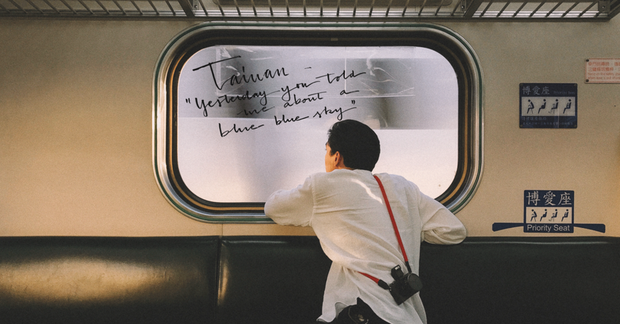 Taiwan -
"Yesterday you told
me about a
blue blue sky"
博愛座
博愛座
Priority Seat